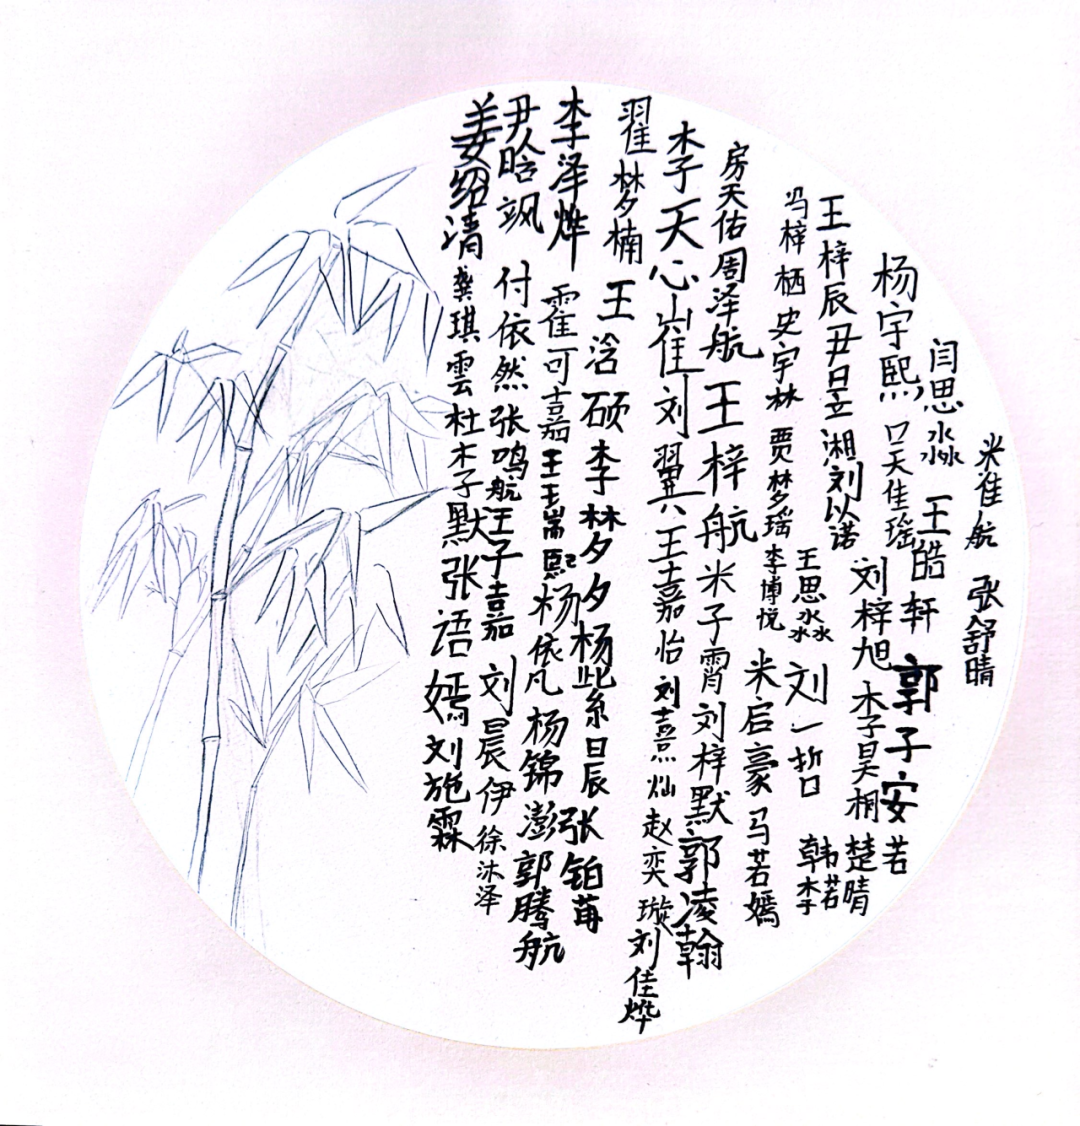 米淮航 张舒晴
闫思淼 王皓轩 郭子安
杨宇熙 吕天佳瑶 刘梓旭 李昊桐 楚晴若
王梓辰 尹昱湘 刘以诺 刘一哲 韩若
冯梓栖 史宇林 贾梦瑶 李博悦 王思淼 米启豪 马若嫣
房天佑 周泽航 王梓航 米子霄 刘梓默 郭凌翰
李天心 崔刘翼 王嘉怡 刘熹灿 赵奕璇 刘佳烨
翟梦楠 王浛硕 李梦夕 杨紫日辰 张铂苒
李泽烨 霍可嘉 王王耑熙 杨依凡 杨锦澎 郭腾航
尹晗飒 付依然 张鸣航 王子嘉 刘晨伊 徐沐泽
姜绍清 龚琪雲 杜木子默 张语嫣 刘施霖